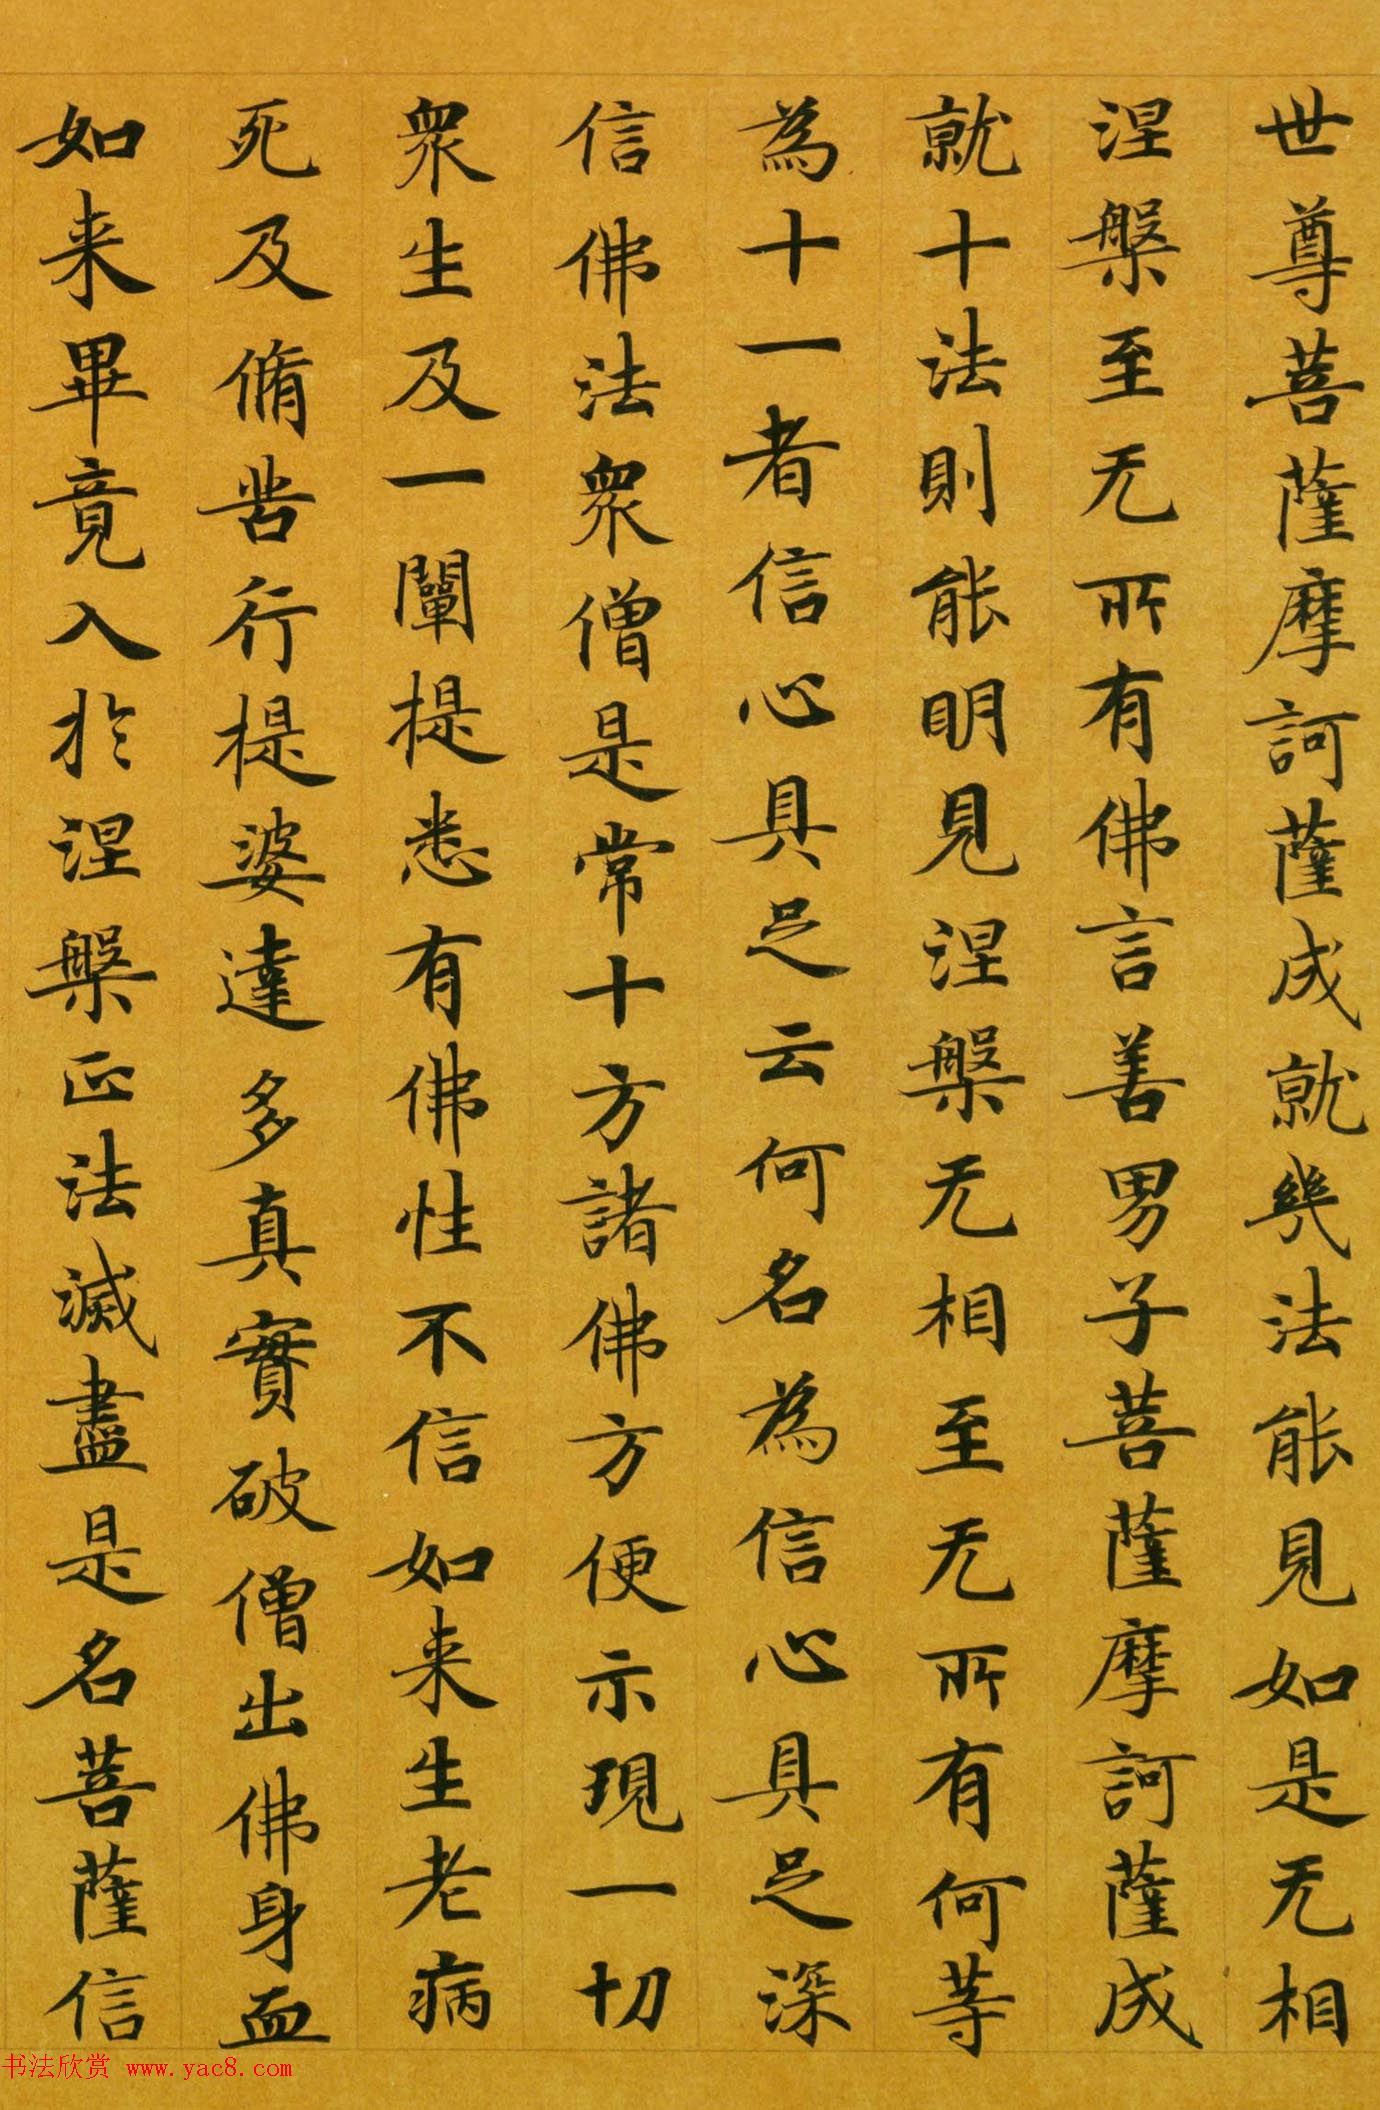 世尊菩薩摩訶薩成就幾法能見如是无相
涅槃至无所有佛言善男子菩薩摩訶薩成
就十法則能明見涅槃无相至无所有何等
為十一者信心具足云何名為信心具足深
信佛法衆僧是常十方諸佛方便示現一切
衆生及一闡提悉有佛性不信如来生老病
死及脩苦行提婆達多真實破僧出佛身血
如来畢竟入於涅槃正法滅盡是名菩薩信
书法欣赏 www.yac8.com